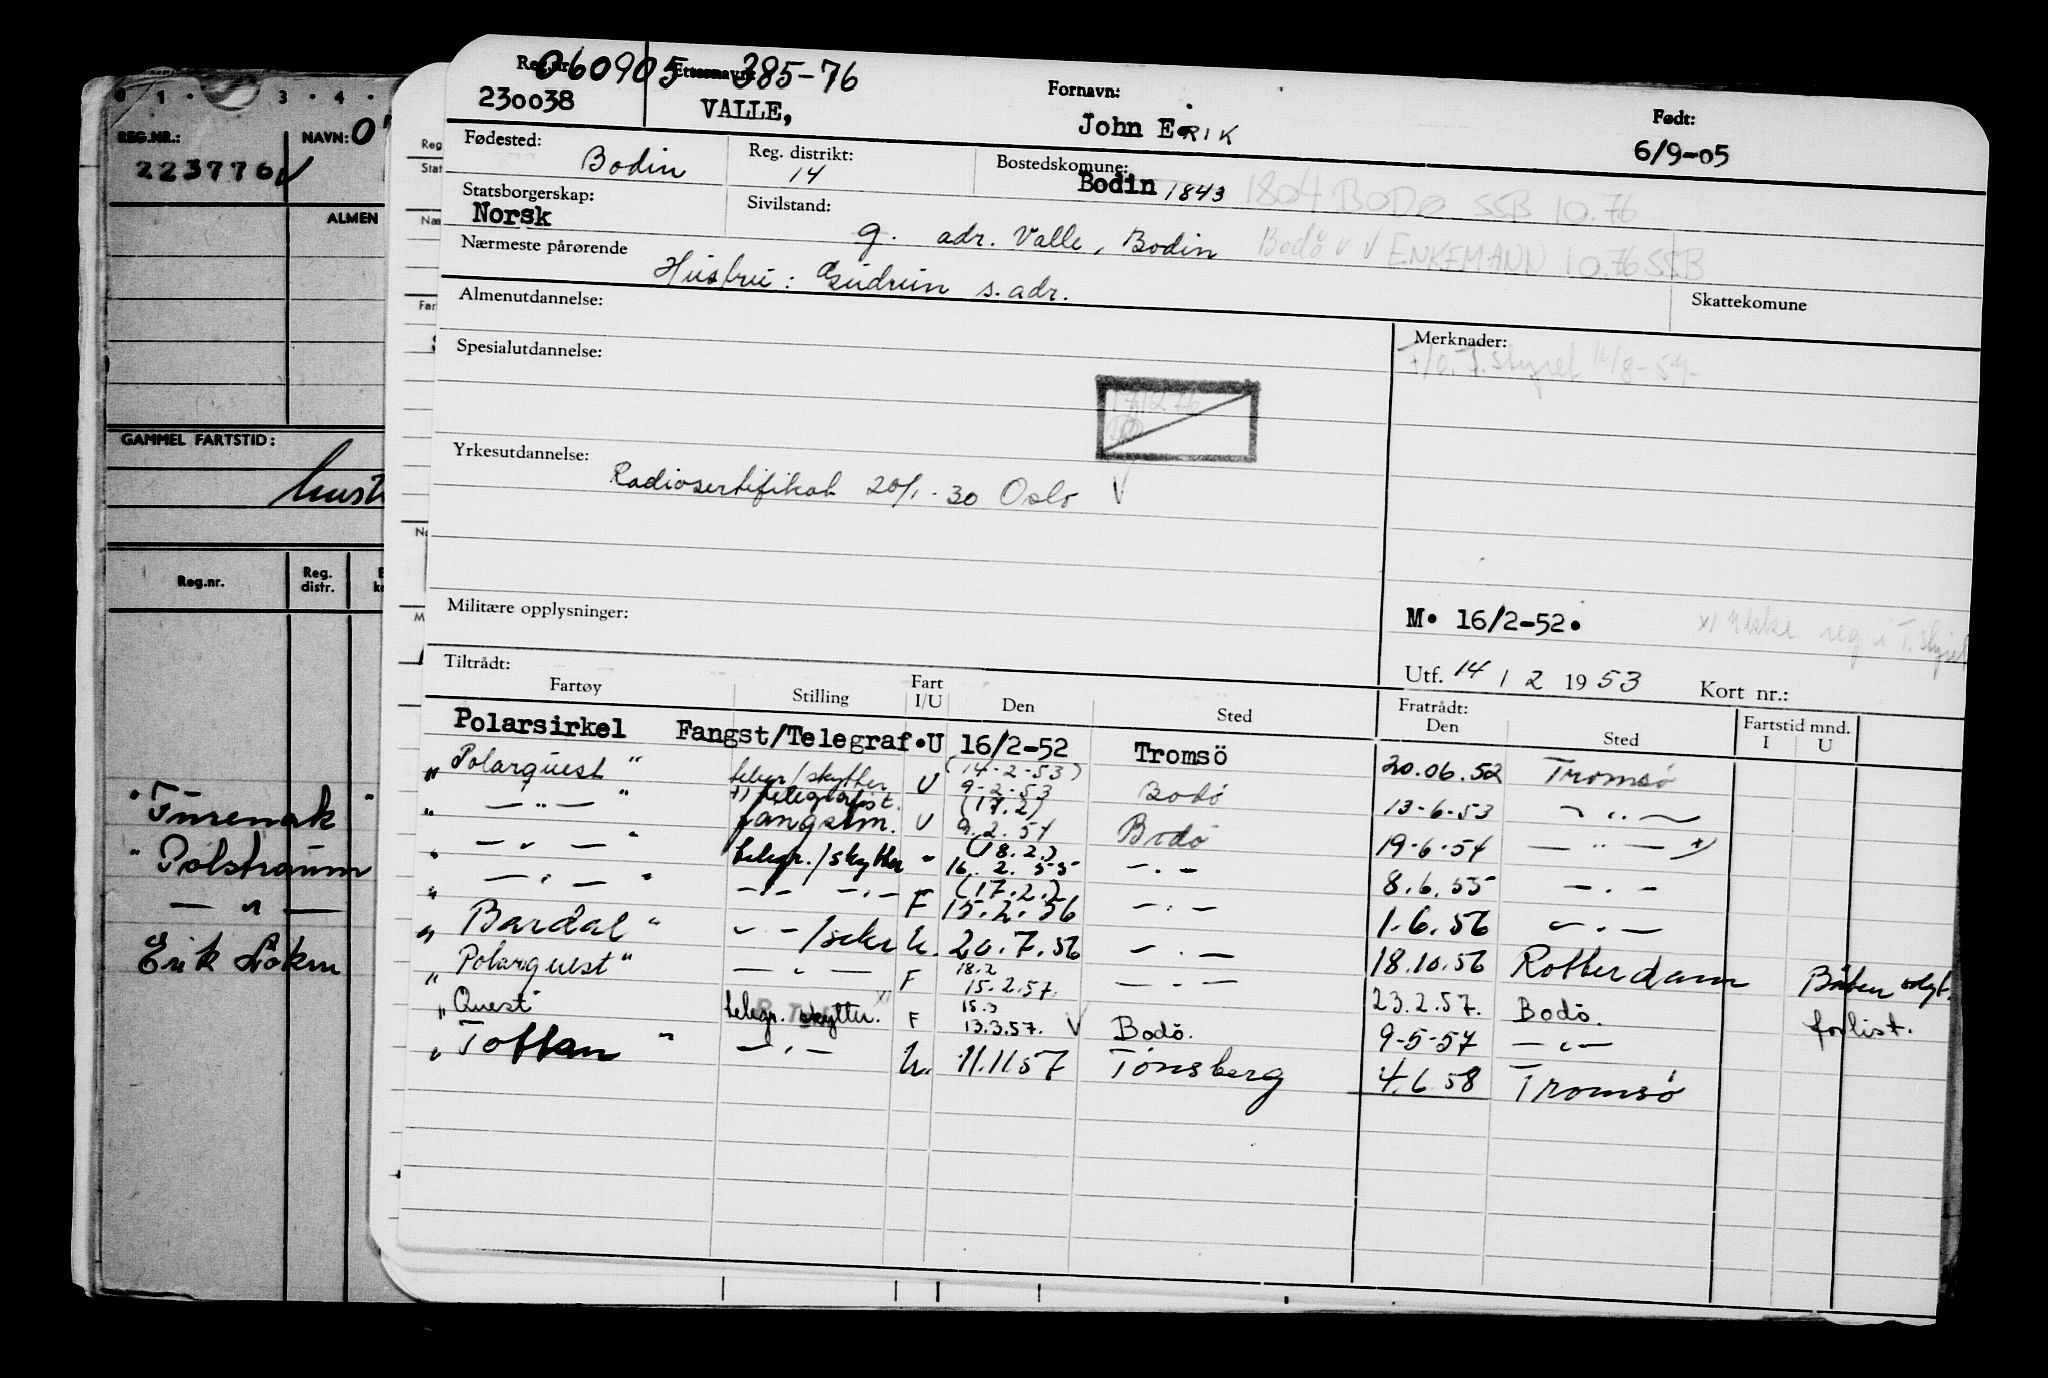 Reg.nr. 060905 Etternavn: 385-76 Fornavn: Født:
230038 VALLE, John ERIK 6/9-05
Fødested: Bodin Reg. distrikt: 14 Bostedskomune: Bodin 1843 1804 BODØ SSB 10.76
Statsborgerskap: Norsk Sivilstand: g. adr. Valle, Bodin Bodø V V ENKEMANN 10.76 SSB
Nærmeste pårørende Hustru: Gudrun s. adr. Skattekomune
Almenutdannelse: Merknader:
Spesialutdannelse:
Yrkesutdannelse: Radiosertifikat 20/1-30 Oslo V
Militære opplysninger: M. 16/2-52.
x) Ikke reg i T. styret
Utf. 14 / 2 1953 Kort nr.:
Tiltrådt: Fratrådt:
Fartøy Stilling Fart I/U Den Sted Den Sted Fartstid mnd. I U
Polarsirkel Fangst/Telegraf. U 16/2-52 Tromsö 20.06.52 Tromsø
" Polarquest " telegr/skytter U (14-2-53) 9-2-53 Bodø 13-6-53 — " —
" — " — " x) telegrafist. fangstm. U (17.2) 9.2.54 Bodø 19-6-54 — " — x)
" — " — " telegr./skytter " (18.2.) 16.2.55 — " — 8.6.55 — " —
" — " — " — " — — " — F (17.2.) 15.2.56 — " — 1.6.56 — " —
" Bardal " — " — /sekr U. 20.7.56 — " — 18.10.56 Rotterdam
" Polarquest " — " — F 18.2 15.2.57. — " — 23.2.57. Bodö. Båten forlist.
" Quest telegr. skytter. F 15.3 13.3.57. V Bodö. 9-5-57 — " —
" Tottan " — " — U. 11.11.57 Tønsberg 4.6.58 Tromsø
REG.NR.: NAVN:
223776 V
ALMEN
GAMMEL FARTSTID:
Reg.nr. Reg. distr.
" Turenak "
" Polstraum
— " —
Erik